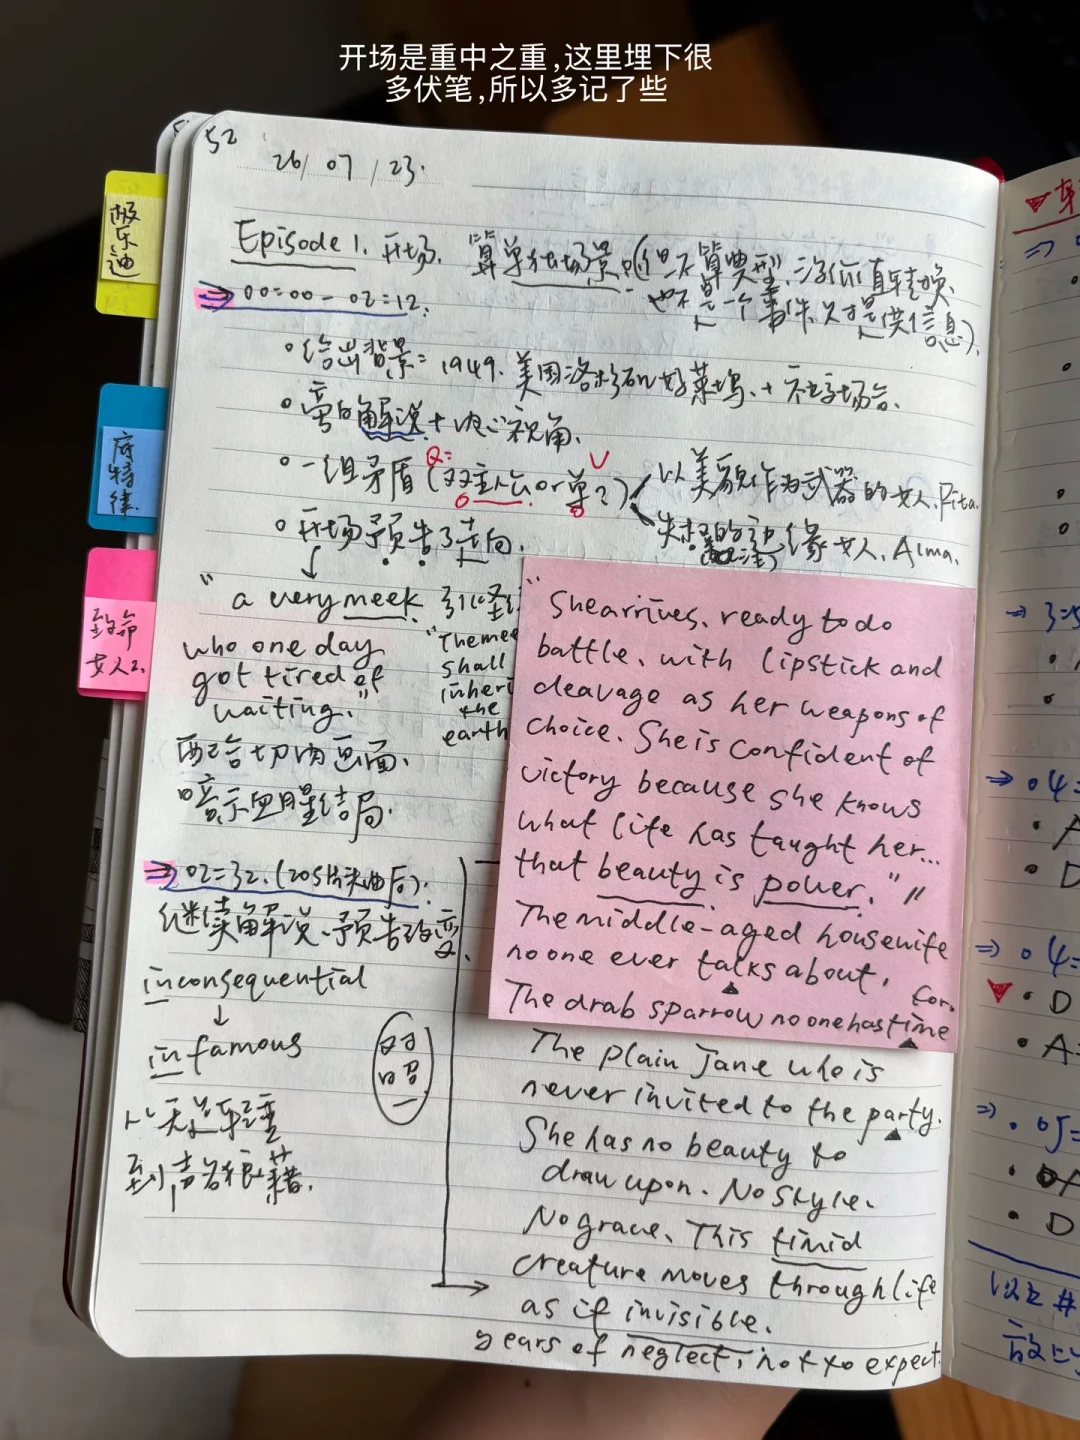 开场是重中之重,这里埋下很
多伏笔,所以多记了些
52
26/07/23.
极乐迪
底特律
致命
女人2.
Episode 1. 开场. 算单独场景.(但不算典型,没价值转换.
也不是一个事件.只是提供信息).
⇒ 00:00 - 02:12.
给出背景: 1949. 美国洛杉矶好莱坞.+社交场合.
旁白解说+内心视角.
一组矛盾(双主人公or单?)
Q:
以美貌作为武器的女人,Rita.
边缘女人, Alma.
开场预告了走向.
"a very meek. 引《圣
who one day "The mee
got tired of shall
waiting." inheri
the
earth
配合切肉画面.
暗示血腥结局.
"She arrives. ready to do
battle, with lipstick and
cleavage as her weapons of
choice. She is confident of
victory because she knows
what life has taught her...
that beauty is power."
The middle-aged housewife
no one ever talks about.
The drab sparrow no one has time
for.
⇒ 02:32. (20s片头曲后).
继续解说、预告改变.
inconsequential
↓
infamous
从无足轻重
到声名狼藉.
The plain Jane who is
never invited to the party.
She has no beauty to
draw upon. No style.
No grace. This timid
creature moves through life
as if invisible.
years of neglect, not to expect
⇒ 04:
A
D
⇒ 04:
D
A:
⇒ 05:
D